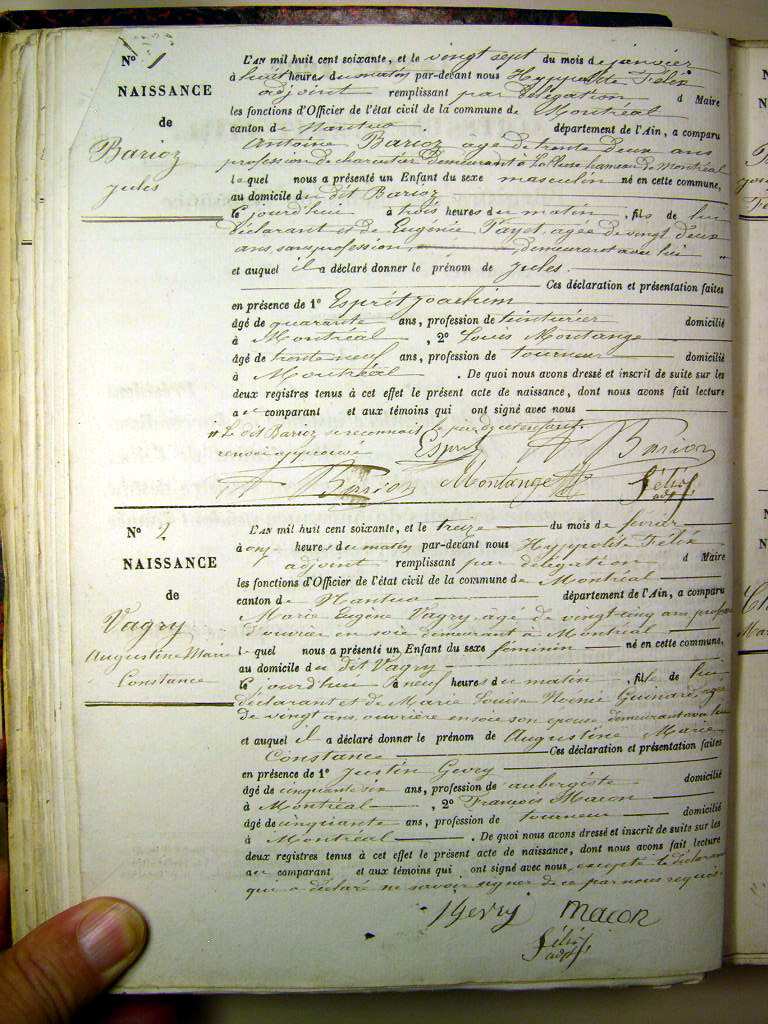 N° 1
NAISSANCE
de
Barioz
Jules
L'AN mil huit cent soixante, et le vingt sept du mois de janvier
à huit heures du matin par-devant nous Hyppolite Félix
adjoint remplissant par délégation d Maire
les fonctions d'Officier de l'état civil de la commune de Montréal
canton de Nantua. département de l'Ain, a comparu
Antoine Barioz agé de trente deux ans
profession de charretier demeurant à hameau de Montréal
lequel nous a présenté un Enfant du sexe masculin né en cette commune,
au domicile du dit Barioz
le jourd'hui à trois heures du matin, fils de lui
déclarant et de Eugénie Tayet agée de vingt deux
ans sans profession, demeurant avec lui
et auquel il a déclaré donner le prénom de Jules.
Ces déclaration et présentation faites
en présence de 1° Esprit Joachim
âgé de quarante ans, profession de teinturier domicilié
à Montréal, 2° Louis Montange
âgé de trente neuf ans, profession de tourneur domicilié
à Montréal. De quoi nous avons dressé et inscrit de suite sur les
deux registres tenus à cet effet le présent acte de naissance, dont nous avons fait lecture
au comparant et aux témoins qui ont signé avec nous
Le dit Barioz se reconnait le père de cet enfant.
renvoi approuvé Esprit A Barioz
A Barioz Montange Félix
adjt
N° 2
NAISSANCE
de
Vagry
Augustine Marie
Constance
L'AN mil huit cent soixante, et le treize du mois de février
à onze heures du matin par-devant nous Hyppolite Félix
adjoint remplissant par délégation d Maire
les fonctions d'Officier de l'état civil de la commune de Montréal
canton de Nantua département de l'Ain, a comparu
Marie Eugène Vagry, âgé de vingt cinq ans profession
d'ouvrier en soie demeurant à Montréal
lequel nous a présenté un Enfant du sexe féminin né en cette commune,
au domicile du dit Vagry
le jourd'hui à neuf heures du matin, fille de lui
déclarant et de Marie Louise Noémie Guinard, agée
de vingt ans, ouvrière en soie son épouse, demeurant avec lui
et auquel il a déclaré donner le prénom de Augustine Marie
Constance Ces déclaration et présentation faites
en présence de 1° Justin Gevry
âgé de cinquante six ans, profession de aubergiste domicilié
à Montréal, 2° François Macon
âgé de cinquante ans, profession de tourneur domicilié
à Montréal. De quoi nous avons dressé et inscrit de suite sur les
deux registres tenus à cet effet le présent acte de naissance, dont nous avons fait lecture
au comparant et aux témoins qui ont signé avec nous, excepté le déclarant
qui a déclaré ne savoir signer de ce par nous requis
J Gevry Macon
Félix
adjt